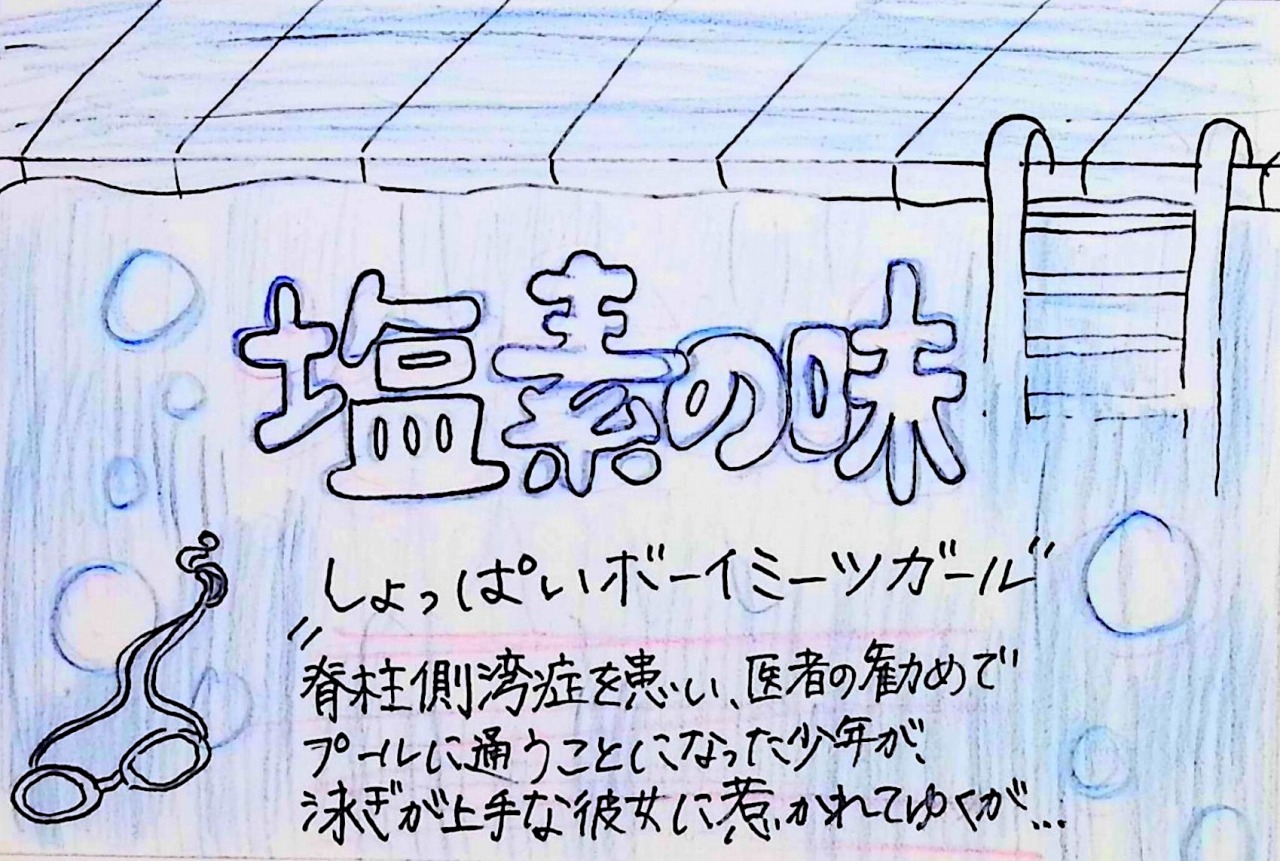 塩素の味
"しょっぱいボーイミーツガール"
脊柱側湾症を患い、医者の勧めで
プールに通うことになった少年が、
泳ぎが上手な彼女に惹かれてゆくが…